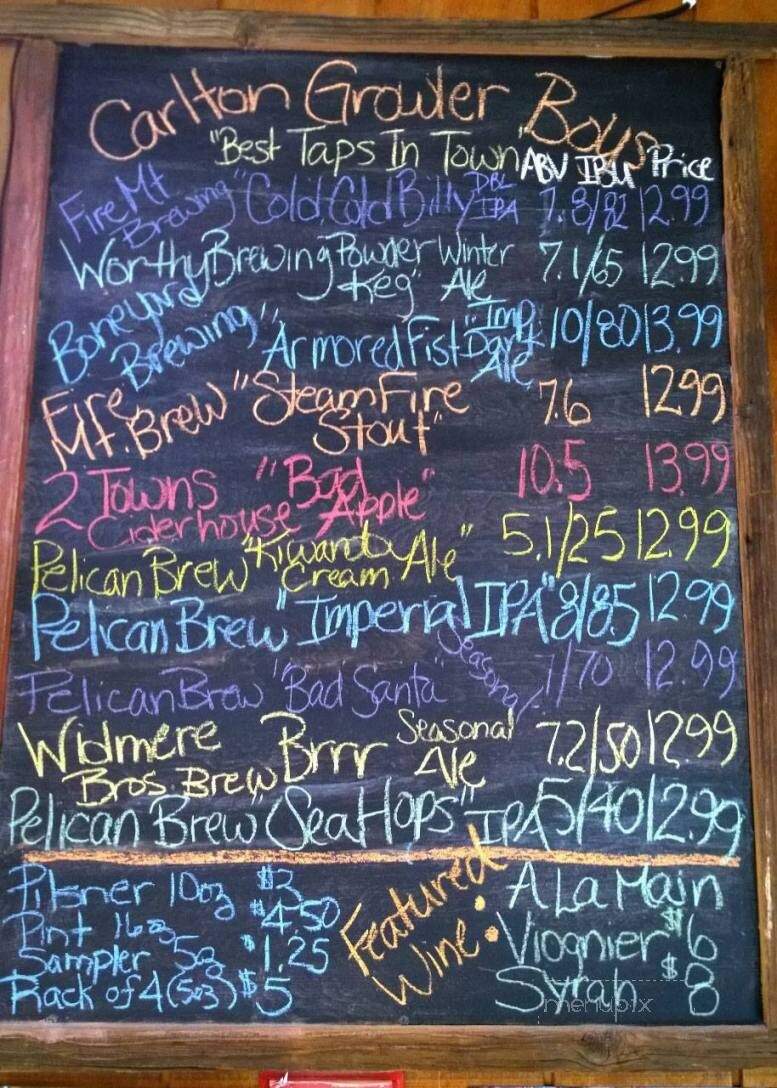 Carlton Growler Boys
"Best Taps In Town" ABV IBU Price
Fire Mt Brewing "Cold, Cold Billy" DBL IPA 7.8/82 12.99
Worthy Brewing Powder Keg" Winter Ale 7.1/65 12.99
Boneyard Brewing "Armored Fist" Imp. Dark Ale 10/80 13.99
Fire Mt. Brew "Steam Fire Stout" 7.6 12.99
2 Towns Ciderhouse "Bad Apple" 10.5 13.99
Pelican Brew "Kiwanda Cream Ale" 5.1/25 12.99
Pelican Brew "Imperial IPA" 8/85 12.99
Pelican Brew "Bad Santa" Seasonal /70 12.99
Widmere Bros. Brew Brrr Seasonal Ale 7.2/50 12.99
Pelican Brew "Sea Hops" IPA 5/40 12.99
Pilsner 10oz $3
Pint 16oz $4.50
Sampler 5oz $1.25
Rack of 4 (5oz) $5
Featured Wine:
A La Main
Viognier $6
Syrah $8
menupix